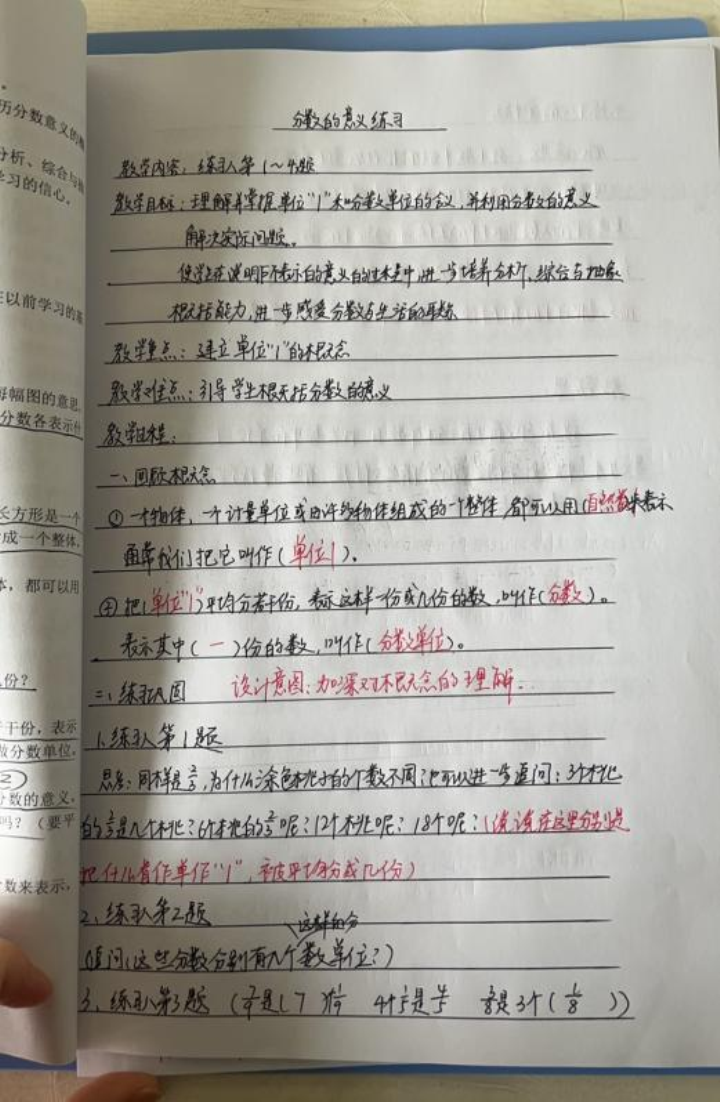 历分数意义的
分析、综合与
学习的信心。
以前学习的基
每幅图的意思
分数各表示什
长方形是一个
成一个整体,
体，都可以用
份？
干份，表示
做分数单位。
②
数的意义,
吗？（要平
数来表示,
分数的意义练习
教学内容：练习八第1~4题
教学目标：理解并掌握单位"1"和分数单位的含义,并利用分数的意义
解决实际问题。
使学生在说明所表示的意义的过程中,进一步培养分析、综合与抽象
概括能力,进一步感受分数与生活的联系
教学重点：建立单位"1"的概念
教学难点：引导学生概括分数的意义
教学过程：
一、回顾概念
①一个物体，一个计量单位或由许多物体组成的一个整体,都可以用(自然数1来表示
通常我们把它叫作(单位1)。
②把(单位"1")平均分若干份，表示这样一份或几份的数,叫作(分数)。
表示其中(一)份的数,叫作(分数单位)。
二、练习巩固 设计意图：加深对概念的理解.
1.练习八第1题
思考：同样是2/3,为什么涂色桃子的个数不同?也可以进一步追问：3个桃
的2/3是几个桃?6个桃的2/3呢?12个桃呢?18个呢?(说说在这里分别是
把什么看作单作"1"，被平均分成几份)
2、练习八第2题
这样的分
(追问:这些分数分别有几个数单位?)
3、练习八第3题 (7/9是(7)个1/9 4个1/5是4/5 3/8是3个(1/8))